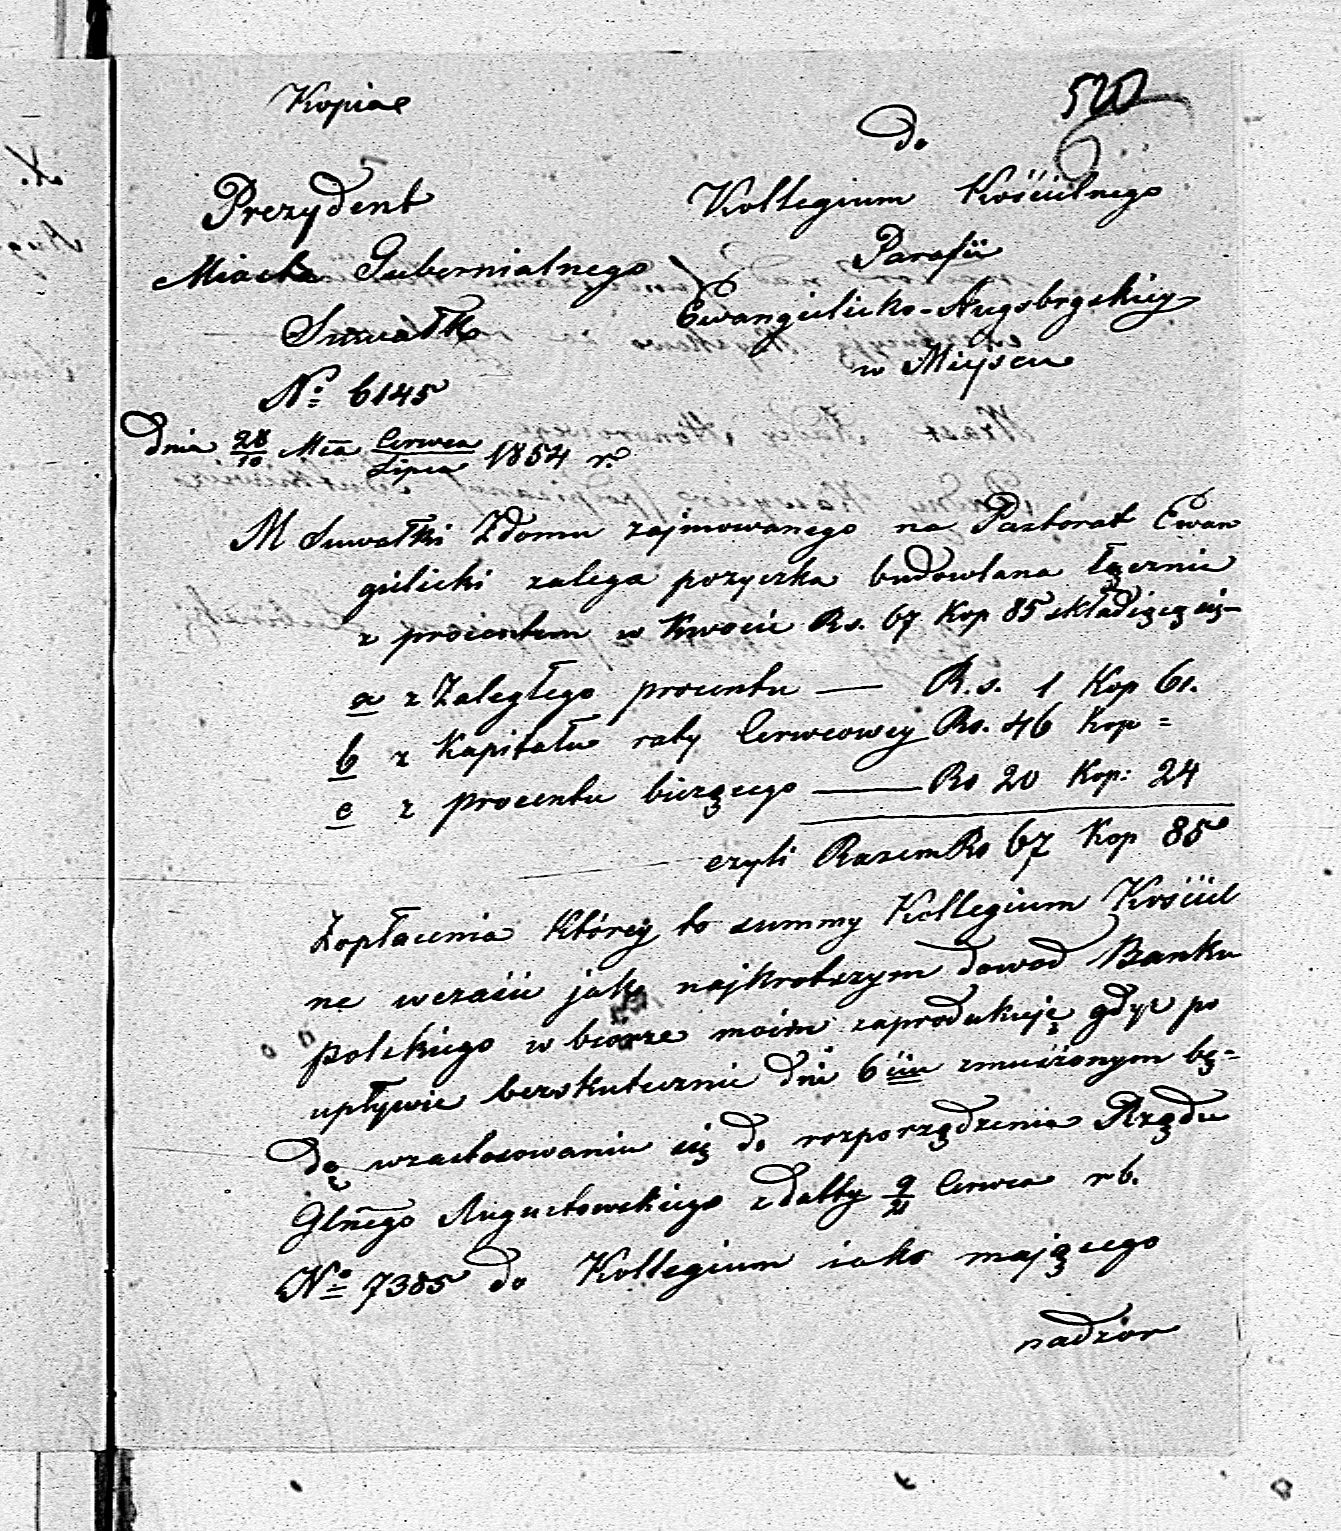 Kopia
520
Prezydent
Miasta Gubernialnego
Suwałk
Nº 6145
Dnia 28/10 Mca Czerwca/Lipca 1854 r.
do
Kollegium Kościelnego
Parafii
Ewangielicko-Augsbrgskiey
w Miejscu
M Suwałki Z domu zajmowanego na Pastorat Ewan
gielicki zalega pożyczka budowlana łącznie
z procentem w kwocie Rs. 67 Kop 85 składiącą się-
a z Zaległego procentu — R.s. 1 Kop 61.
b z Kapitału raty Czerwcowey Rs. 46 Kop =
c z procentu bieżącego — Rs 20 Kop: 24
czyli Razem Rs 67 Kop 85
Zopłacenia którey to summy Kollegium Kościel
ne wczasie jak najkrotszym dowod Banku
polskiego w biorze moim zaprodukuje gdyż po
upływie bezskutecznie dni 6iiu zmuszonym bę-
dę wzastosowaniu się do rozporządzenia Rządu
Glnego Augustowskiego zdatty 9/21 Czerwca rb.
Nº 7385 do Kollegium iako mającego
nadzior